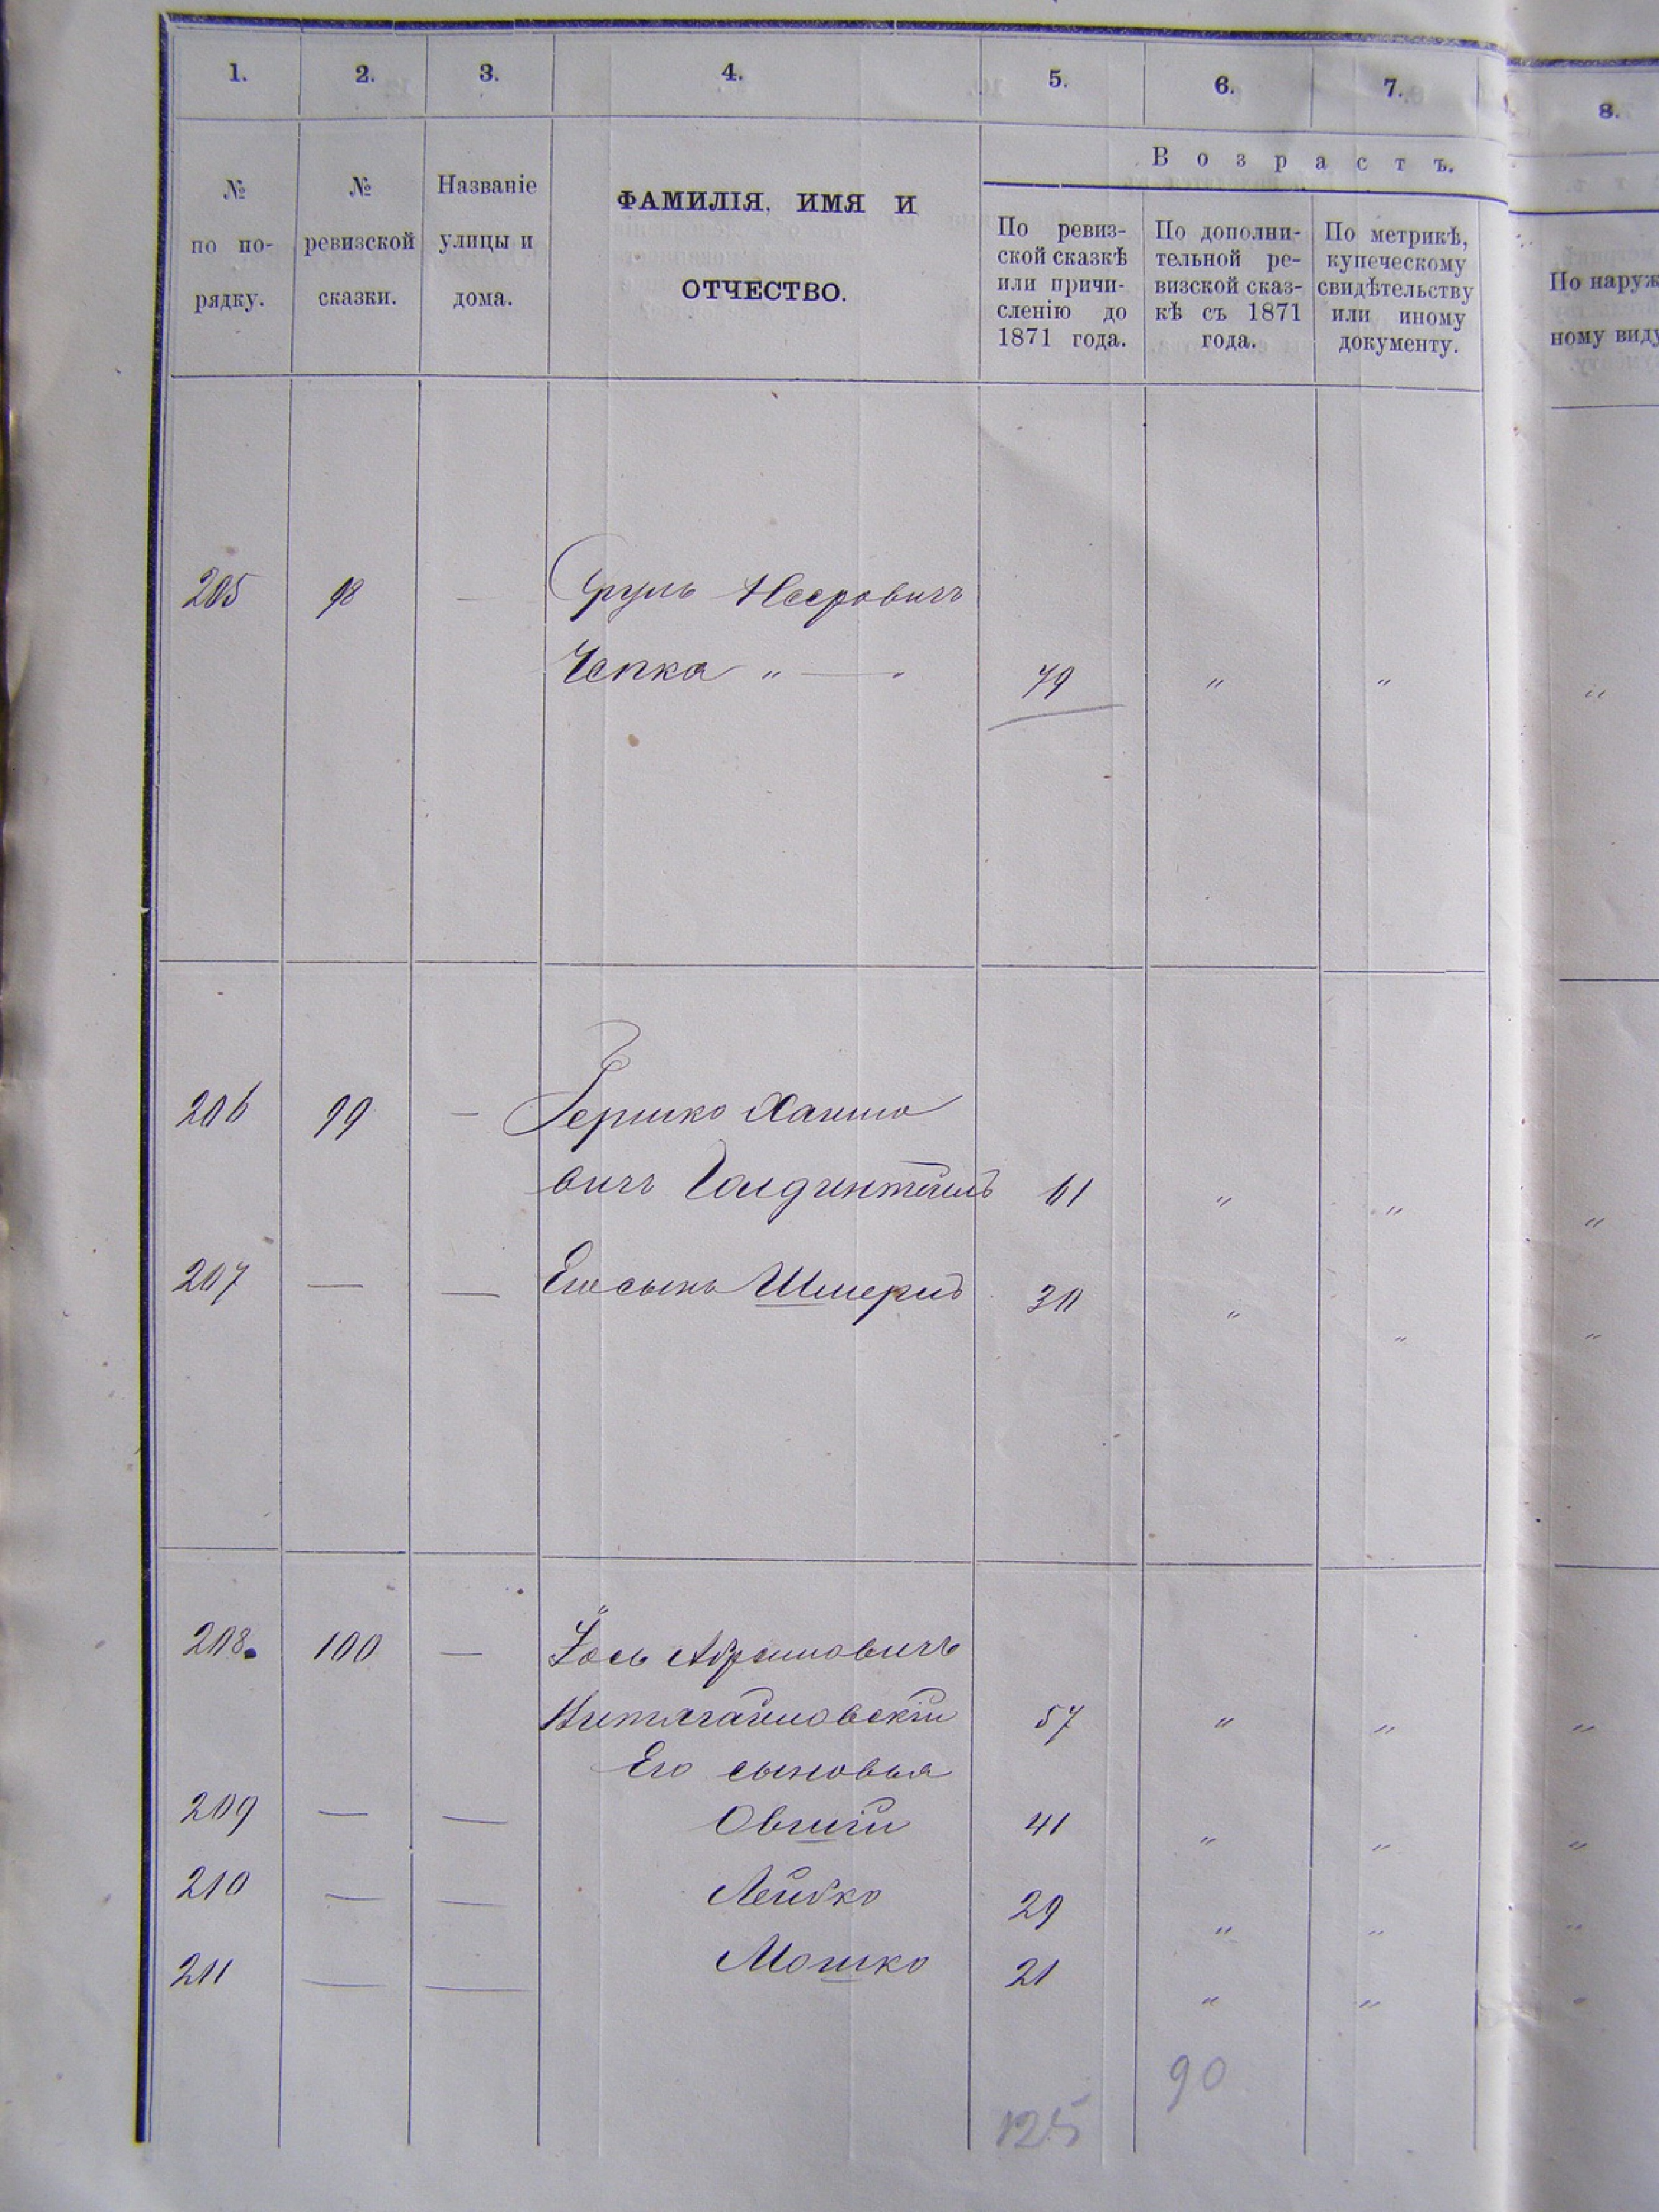 1. 2. 3. 4. 5. 6. 7. 8.
№ по по-рядку.
№ ревизской сказки.
Названіе улицы и дома.
ФАМИЛІЯ, ИМЯ И
ОТЧЕСТВО.
Возрастъ.
По ревиз-
ской сказкѣ
или причи-
сленію до
1871 года.
По дополни-
тельной ре-
визской сказ-
кѣ съ 1871
года.
По метрикѣ,
купеческому
свидѣтельству
или иному
документу.
По наруж
ному виду
205 98 — Сруль
Чепка " — " 49 " " "
206 99 — Гершко Хаимо
вичъ 61 " " "
207 — — Его сынъ Шмерид 30 " " "
208. 100 — Іось Абрамовичъ
57 " " "
Его сыновья
209 — — Овшій 41 " " "
210 — — Лейбко 29 " " "
211 — — Мошко 21 " " "
90
125